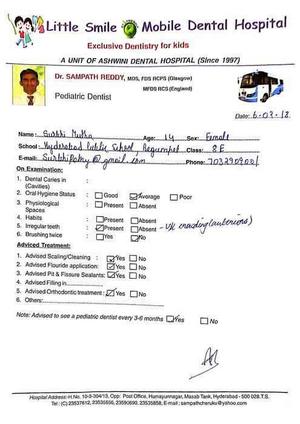 Little Smile Mobile Dental Hospital
Exclusive Dentistry for kids
A UNIT OF ASHWINI DENTAL HOSPITAL (Since 1997)
Dr. SAMPATH REDDY, MDS, FDS RCPS (Glasgow)
MFDS RCS (England)
Pediatric Dentist
Date: 6-03-18
Name: Age: 14 Sex: Female
School: Hyderabad Public School, Begumpet Class: 8E
E-mail: @gmail.com Phone:
On Examination:
1. Dental Caries in :
(Cavities)
2. Oral Hygiene Status : Good Average Poor
3. Physiological : Present Absent
Spaces
4. Habits : Present Absent
5. Irregular teeth : Present Absent
6. Brushing twice : Yes No
Adviced Treatment:
1. Advised Scaling/Cleaning : Yes No
2. Advised Flouride application: Yes No
3. Advised Pit & Fissure Sealants: Yes No
4. Advised Filling in
5. Advised Orthodontic treatment : Yes No
6. Others:
Note: Advised to see a pediatric dentist every 3-6 months Yes No
Hospital Address: H.No. 10-3-304/13, Opp: Post Office, Humayunnagar, Masab Tank, Hyderabad - 500 028.T.S.
Tel: (C) 23537612, 23535656, 23590690, 23535858, E-mail : sampathcheruku@yahoo.com